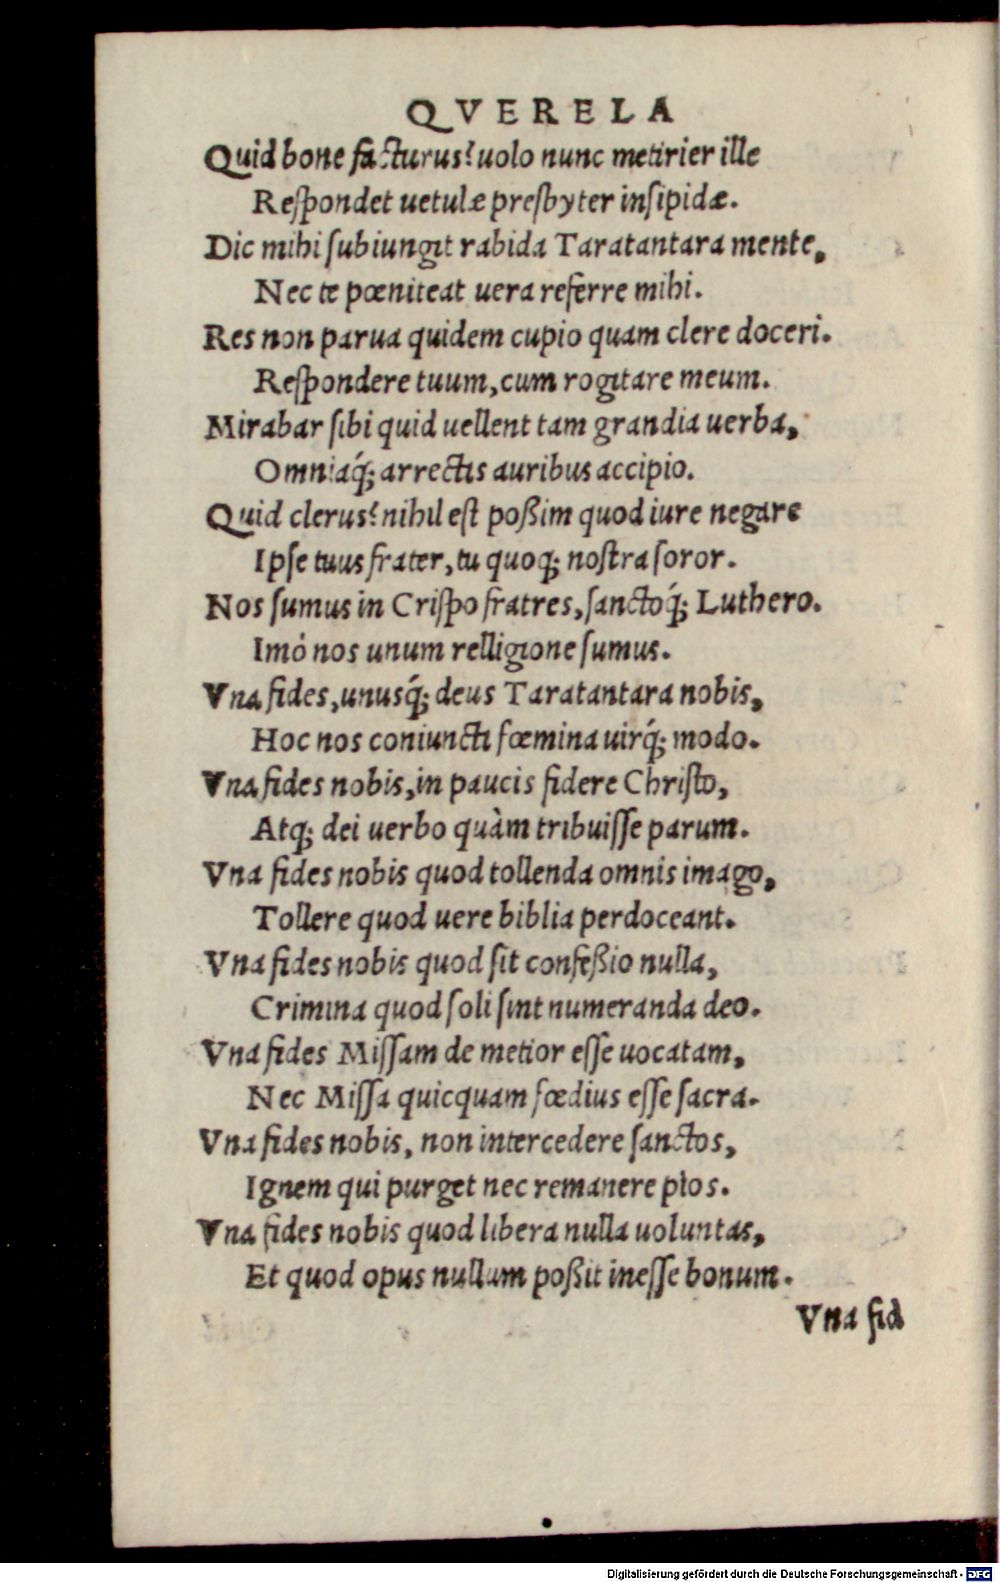 QVERELA
Quid bone facturus? uolo nunc metirier ille
Reſpondet uetulæ preſbyter inſipidæ.
Dic mihi ſubiungit rabida Taratantara mente,
Nec te pœniteat uera referre mihi.
Res non parua quidem cupio quam clere doceri.
Reſpondere tuum, cum rogitare meum.
Mirabar ſibi quid uellent tam grandia uerba,
Omniaq́; arrectis auribus accipio.
Quid clerus? nihil eſt poßim quod iure negare
Ipſe tuus frater, tu quoq; noſtra ſoror.
Nos ſumus in Criſpo fratres, ſanctoq́; Luthero.
Imó nos unum relligione ſumus.
Vna fides, unusq́; deus Taratantara nobis,
Hoc nos coniuncti fœmina uirq́; modo.
Vna fides nobis, in paucis fidere Chriſto,
Atq; dei uerbo quàm tribuiſſe parum.
Vna fides nobis quod tollenda omnis imago,
Tollere quod uere biblia perdoceant.
Vna fides nobis quod ſit confeßio nulla,
Crimina quod ſoli ſint numeranda deo.
Vna fides Miſſam de metior eſſe uocatam,
Nec Miſſa quicquam fœdius eſſe ſacra.
Vna fides nobis, non intercedere ſanctos,
Ignem qui purget nec remanere pios.
Vna fides nobis quod libera nulla uoluntas,
Et quod opus nullum poßit ineſſe bonum.
Vna fid
Digitalisierung gefördert durch die Deutsche Forschungsgemeinschaft - DFG